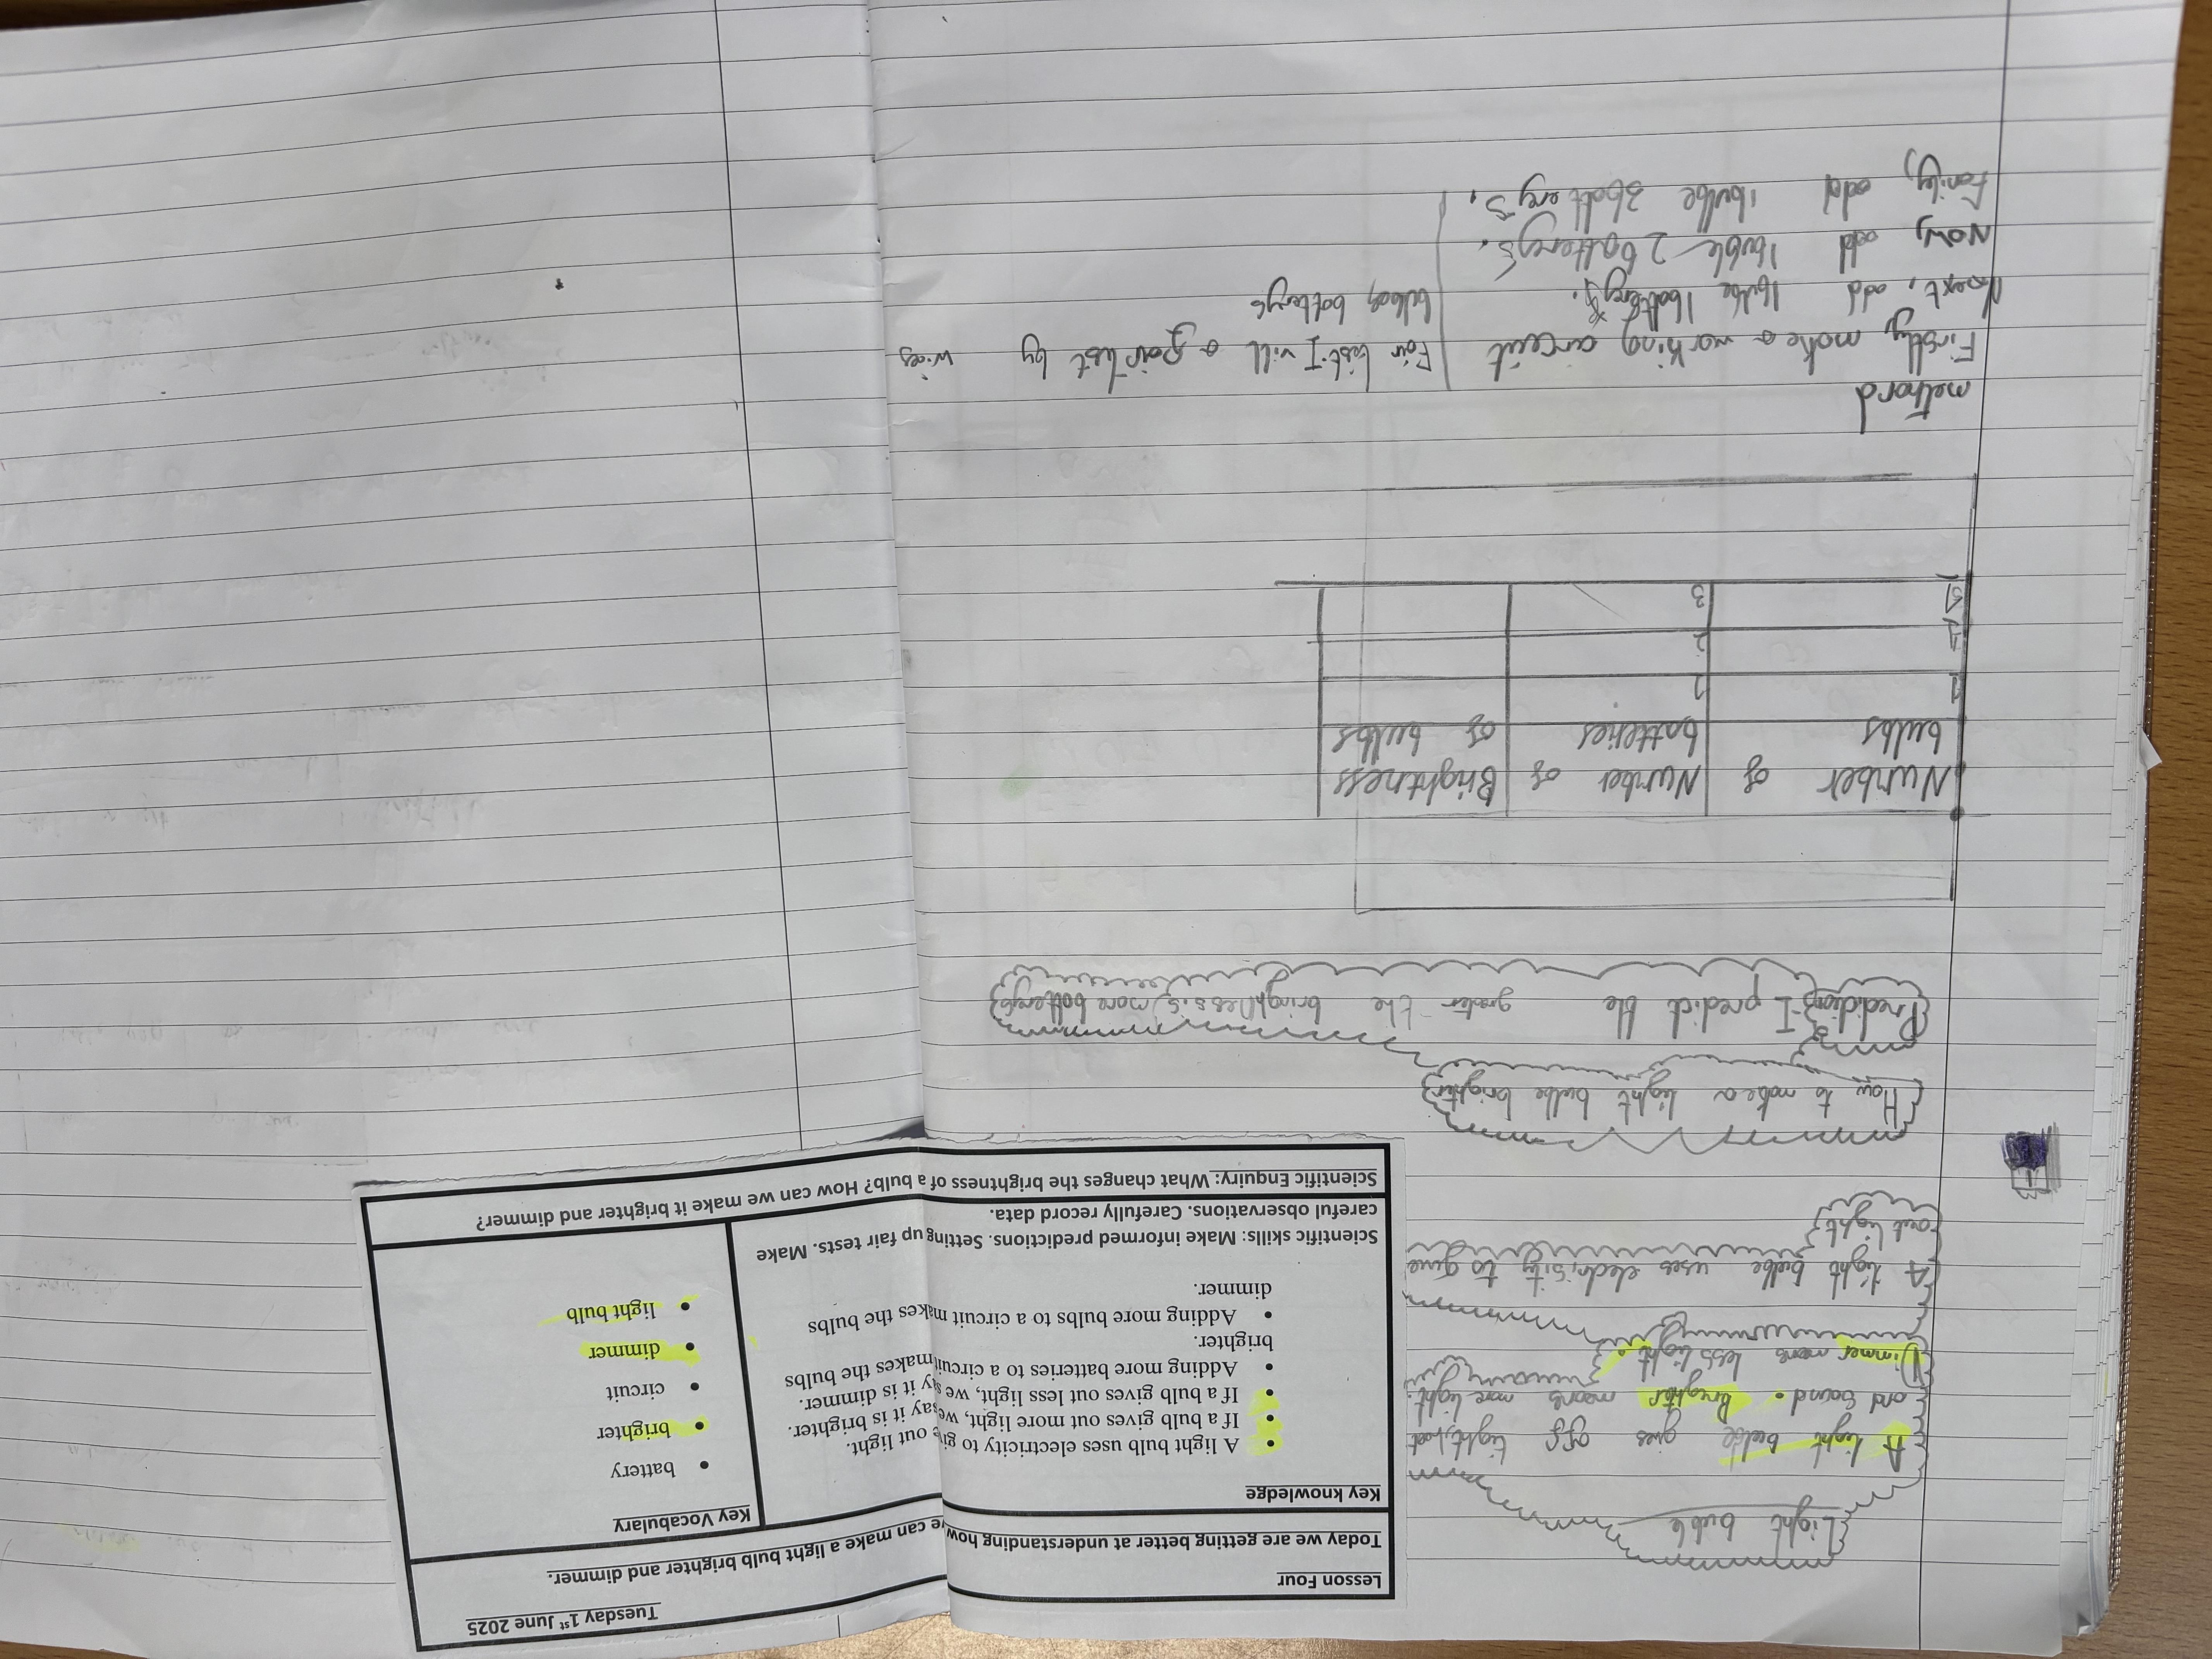 Lesson Four
Tuesday 1st June 2025
Today we are getting better at understanding how we can make a light bulb brighter and dimmer.
Key knowledge
A light bulb uses electricity to give out light.
If a bulb gives out more light, we say it is brighter.
If a bulb gives out less light, we say it is dimmer.
Adding more batteries to a circuit makes the bulbs
brighter.
Adding more bulbs to a circuit makes the bulbs
dimmer.
Scientific skills: Make informed predictions. Setting up fair tests. Make
careful observations. Carefully record data.
Key Vocabulary
battery
brighter
circuit
dimmer
light bulb
Scientific Enquiry: What changes the brightness of a bulb? How can we make it brighter and dimmer?
Light buble
A light bulbe gives off light, heat
and sound. Brighter means more light.
Dimmer means less light
A light bulbe uses electrisity to give
out light
How to make a light bulbe brighter
Prediction-I predict the greater the brightness is, more batterys
Number of bulbs Number of batteries Brightness of bulbs
1 1
1 2
1 3
methord
Firstly make a working circuit
Next, add 1bulbe 1battery.
Now, add 1buble 2 batterys.
Fanily, add 1bulbe 3batterys.
Fair test-I will a fair test by wires
batterys